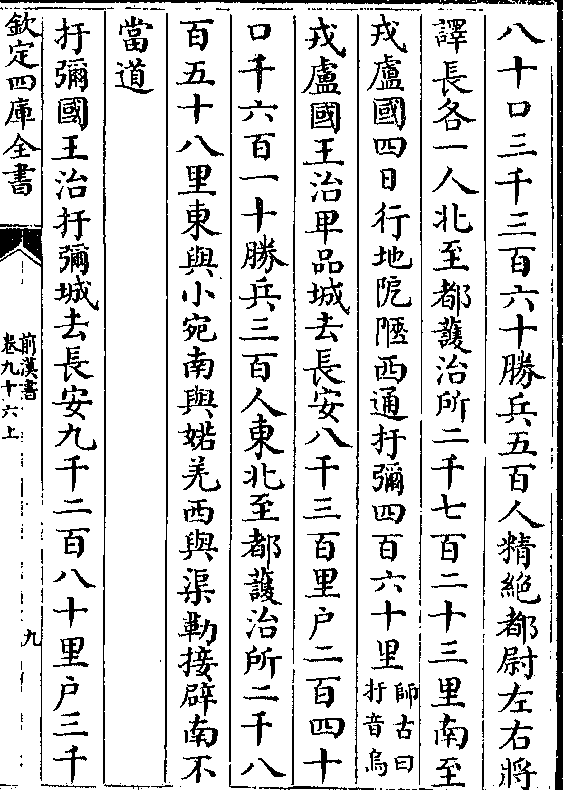 八十口三千三百六十勝兵五百人精絶都尉左右將
譯長各一人北至都護治所二千七百二十三里南至
戎盧國四日行地阸陿西通扜彌四百六十里師古曰扜音烏
戎盧國王治卑品城去長安八千三百里户二百四十
口千六百一十勝兵三百人東北至都護治所二千八
百五十八里東與小宛南與婼羌西與渠勒接辟南不
當道
扜彌國王治扜彌城去長安九千二百八十里户三千
欽定四庫全書
前漢書
卷九十六上
九